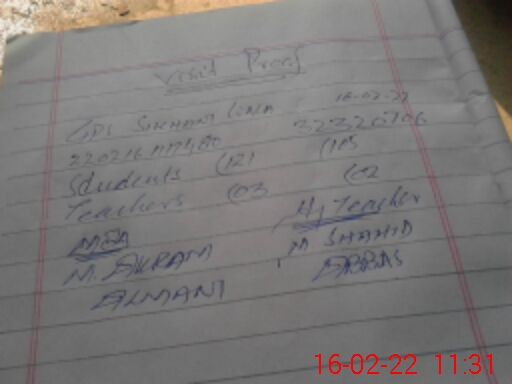 Visit Proof
GPS SUKHANI LINA 16-02-22
32320706
Students (121 (115
Teachers (03 (02
MEA H/Teacher
M. AKRAM M SHAHID
ALMANI ABBAS
16-02-22 11:31